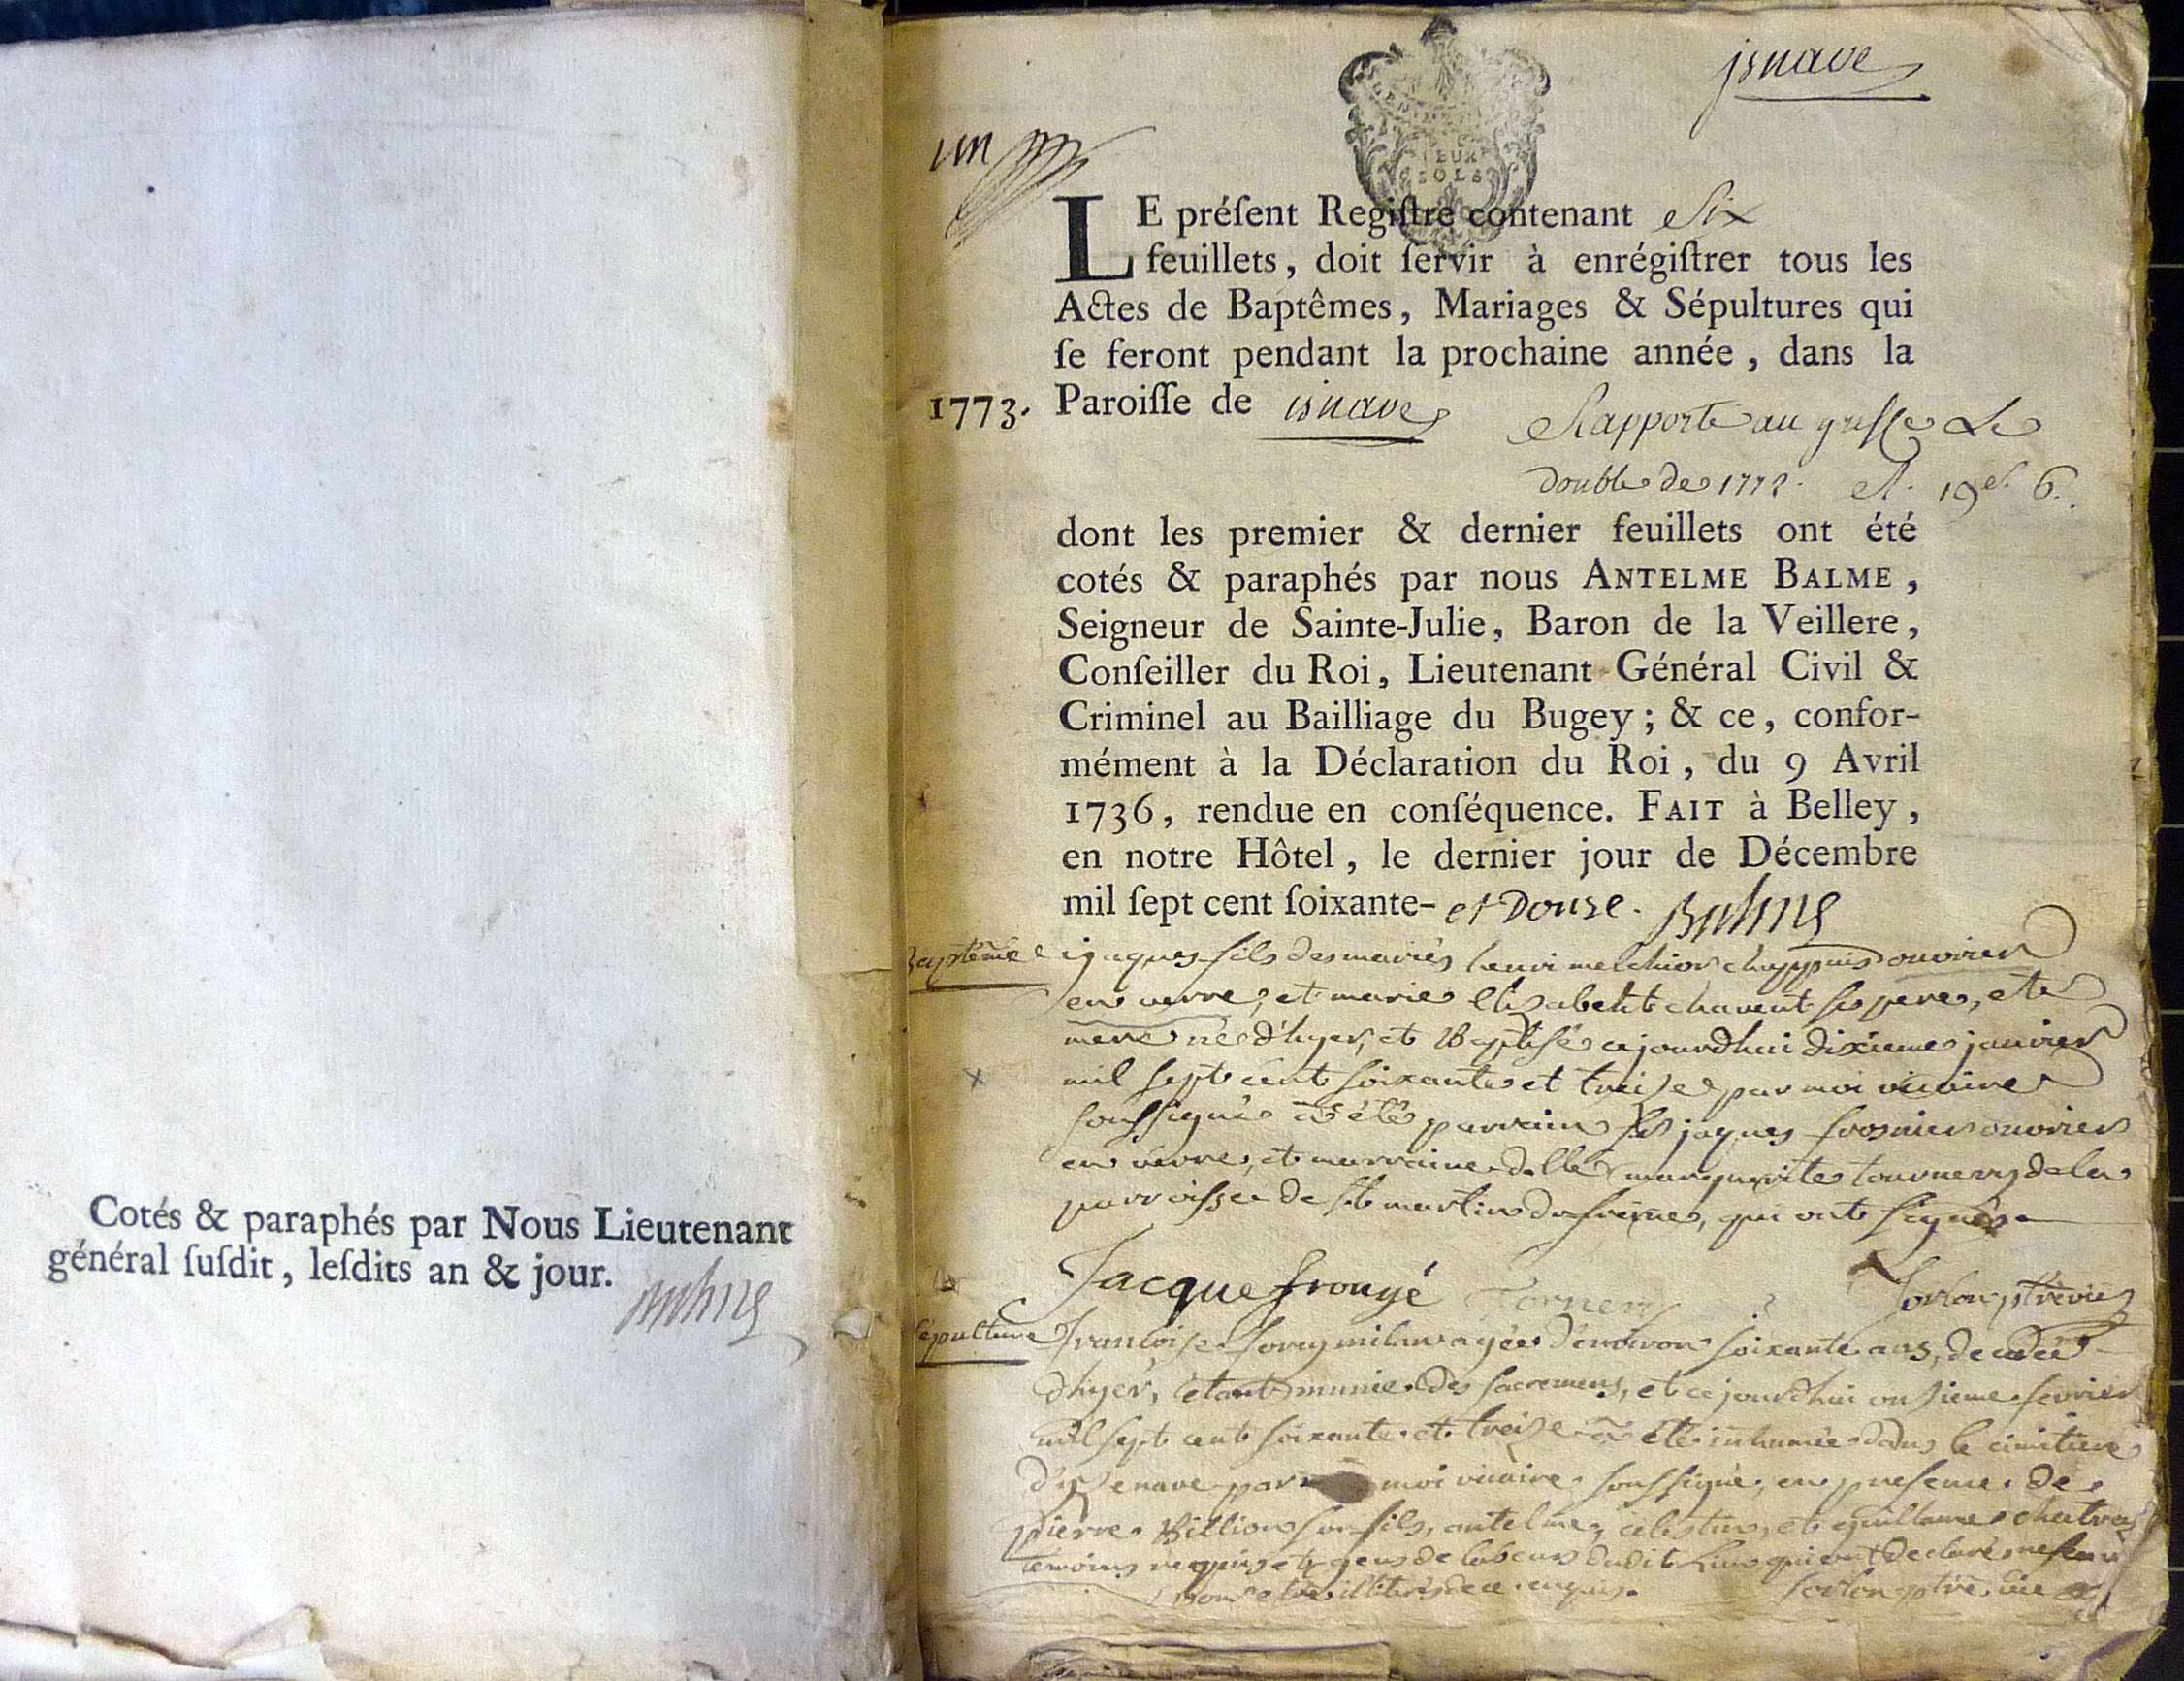 Cotés & paraphés par Nous Lieutenant
général ſuſdit, leſdits an & jour.
jsnave
un
SOLS
LE préſent Regiſtre contenant Six
feuillets, doit ſervir à enrégiſtrer tous les
Actes de Baptêmes, Mariages & Sépultures qui
ſe feront pendant la prochaine année, dans la
1773. Paroiſſe de isnave
Rapporté au greffe Le
double de 1772.
dont les premier & dernier feuillets ont été
cotés & paraphés par nous ANTELME BALME,
Seigneur de Sainte-Julie, Baron de la Veillere,
Conſeiller du Roi, Lieutenant Général Civil &
Criminel au Bailliage du Bugey; & ce, confor-
mément à la Déclaration du Roi, du 9 Avril
1736, rendue en conſéquence. FAIT à Belley,
en notre Hôtel, le dernier jour de Décembre
mil ſept cent ſoixante- et Douze. Balme
Baptême jaques fils des mariés henri melchior chappuis ouvrier
en verre, et marie Elisabeth chavent ses pere, et
mere né d'hyer, et Baptisé cejourdhui dixieme janvier
mil sept cent soixante et treize par moi vicaire
soussigné a été parrain jaques ouvrier
en verre, et marraine dlle marguerite tournery de la
parroisse de st martin du freine, qui ont signés
Jacque frongé Torlon ptre vic
sépulture françoise agée d'environ soixante ans, decedée
d'hyer, étant munie des sacremens, et cejourdhui onzieme fevrier
mil sept cent soixante et treize a été inhumée dans le cimitiere
d'izenave par moi vicaire soussigné, en presence de
pierre Billion son fils, antelme celestin, et guillaume
temoins requis et gens de labeur dudit Lieu qui ont declaré ne savoir
pour etre illiterés de ce enquis. Torlon ptre vic